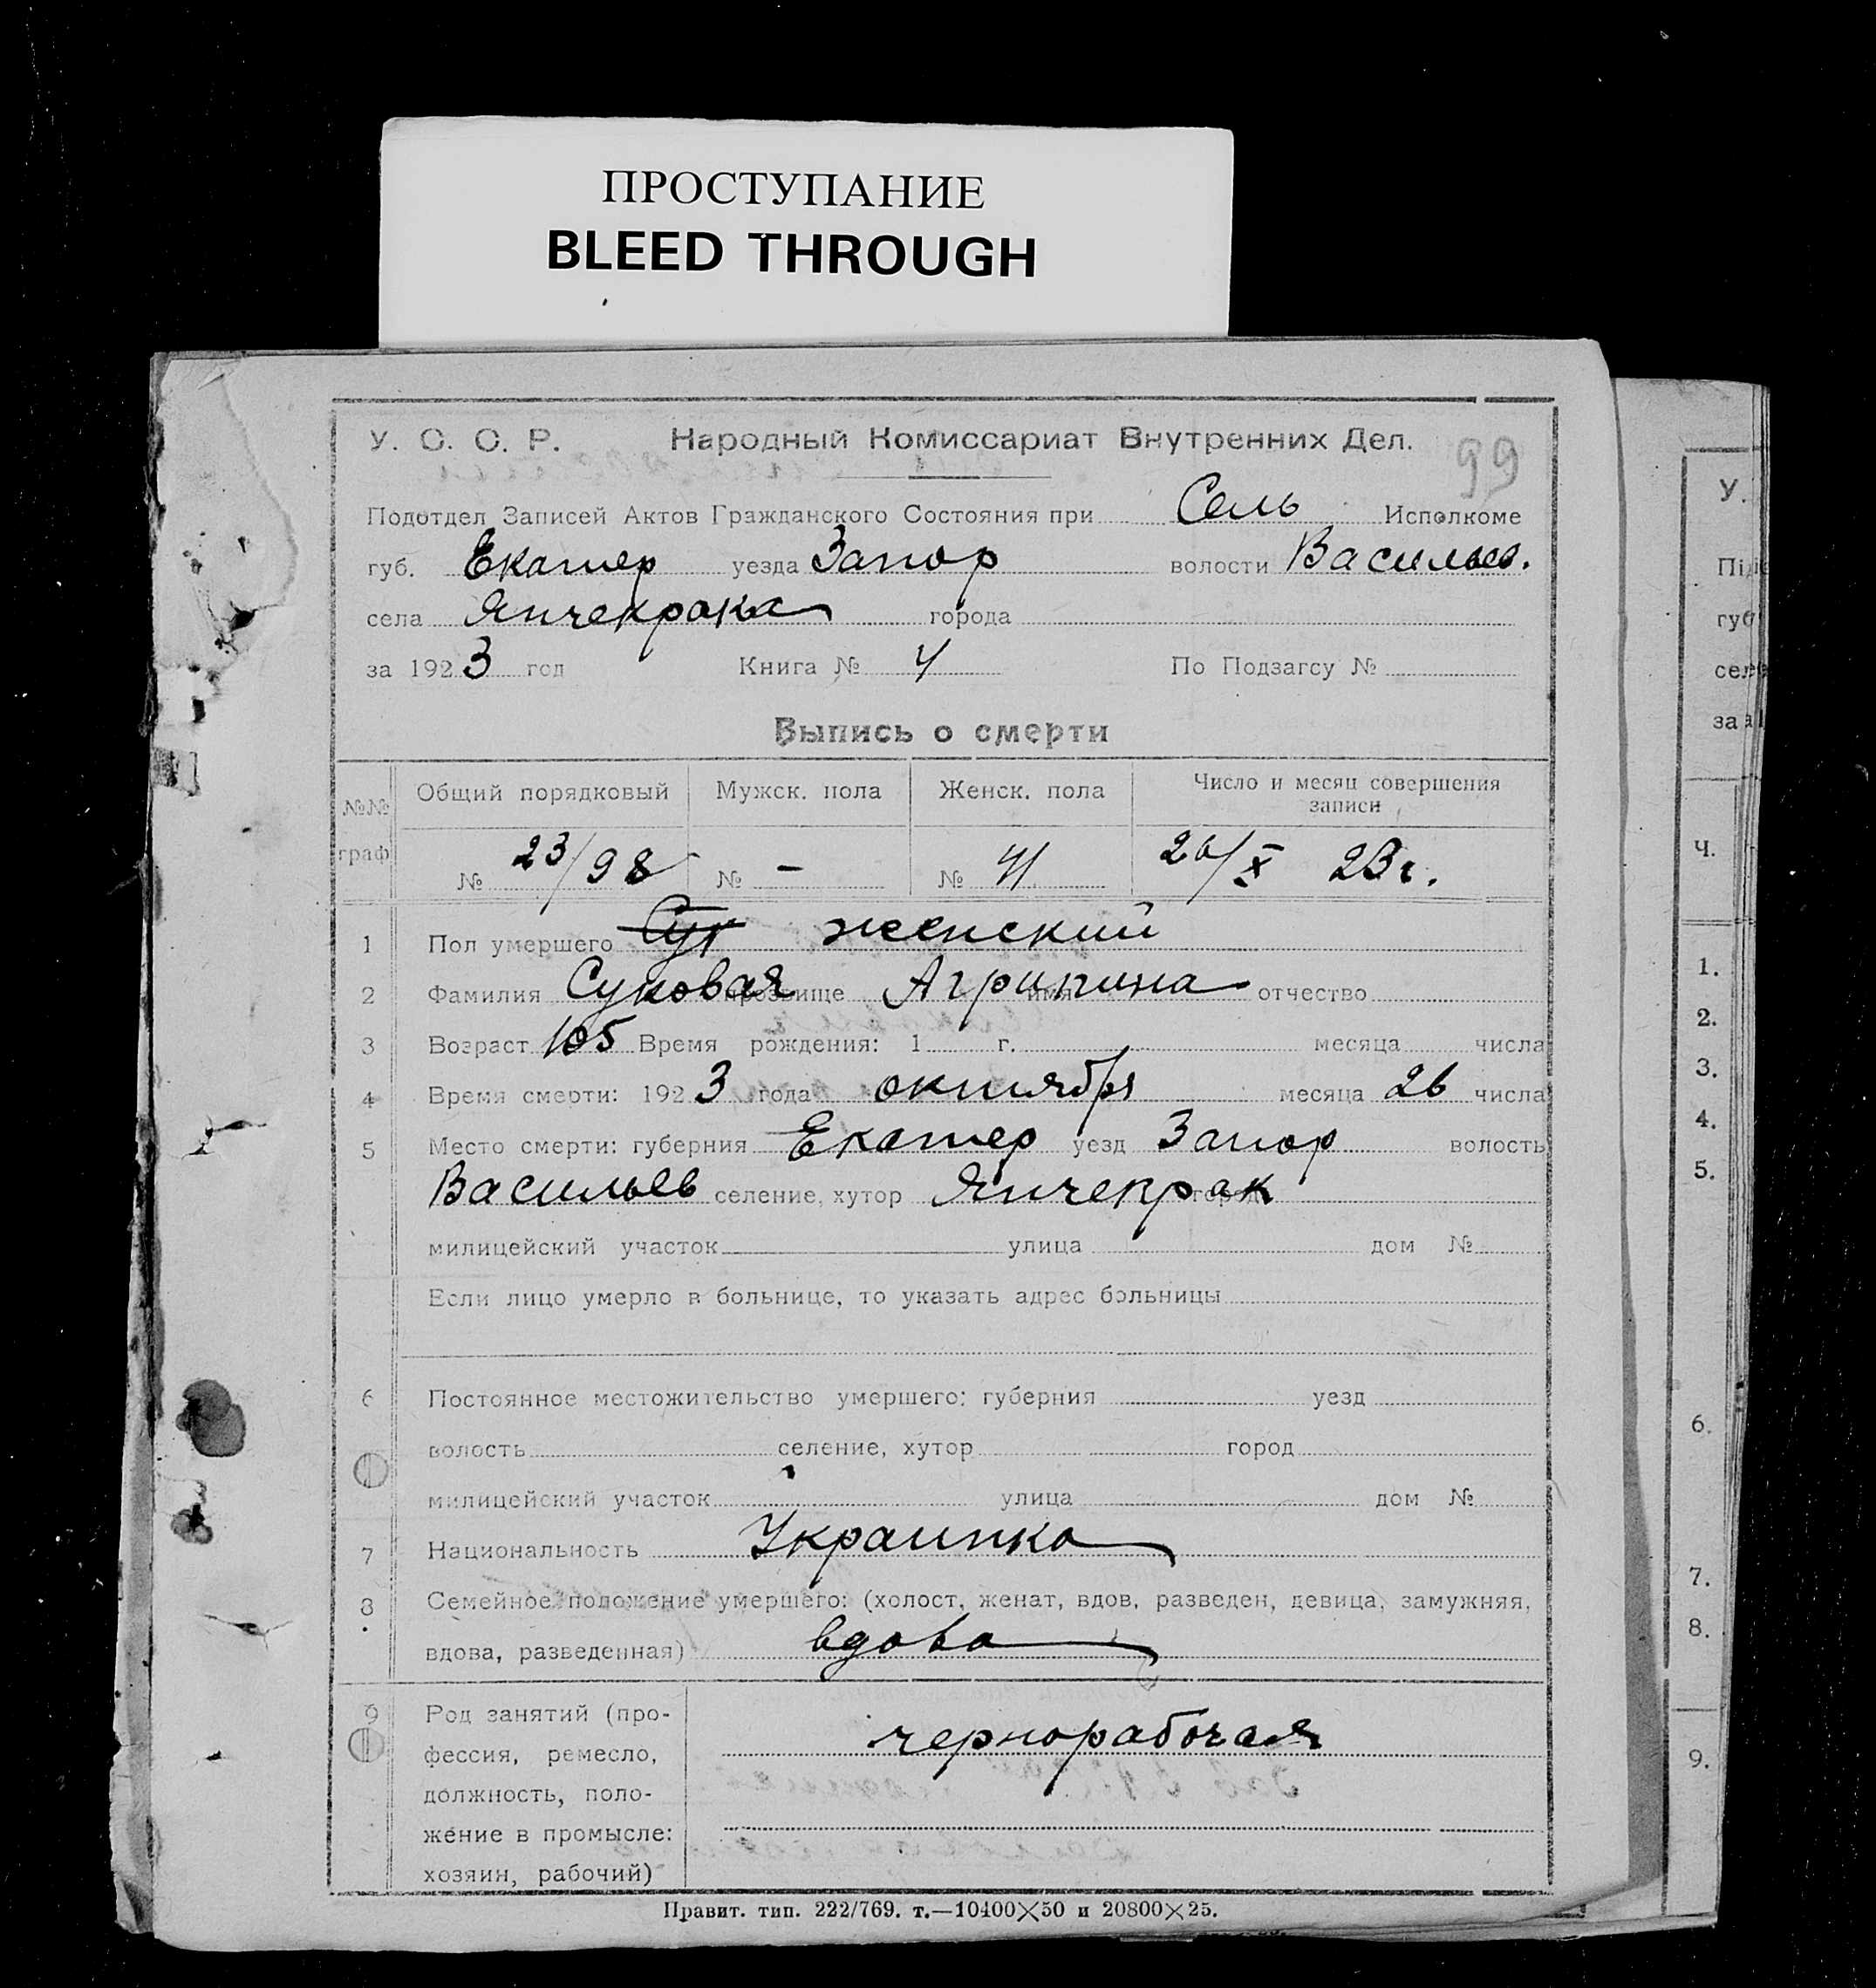 ПРОСТУПАНИЕ
BLEED THROUGH
У. С. С. Р. Народный Комиссариат Внутренних Дел. 99
Подотдел Записей Актов Гражданского Состояния при Сель Исполкоме
губ. Екатер уезда Запор волости Васильев.
села Янчекрака города
за 1923 год Книга № 4 По Подзагсу №
Выпись о смерти
№№ граф Общий порядковый Мужск. пола Женск. пола Число и месяц совершения записи
№ 23/98 № – № 41 26/X 23 г.
1 Пол умершего женский
2 Фамилия Суковая прозвище Агрипина имя отчество
3 Возраст 105 Время рождения: 1 г. месяца числа
4 Время смерти: 1923 года октября месяца 26 числа
5 Место смерти: губерния Екатер уезд Запор волость
Васильев селение, хутор Янчекрак город
милицейский участок улица дом №
Если лицо умерло в больнице, то указать адрес больницы
6 Постоянное местожительство умершего: губерния уезд
волость селение, хутор город
милицейский участок улица дом №
7 Национальность Украинка
8 Семейное положение умершего: (холост, женат, вдов, разведен, девица, замужняя,
вдова, разведенная) вдова
9 Род занятий (про-
фессия, ремесло,
должность, поло-
жение в промысле:
хозяин, рабочий)
чернорабочая
Правит. тип. 222/769. т.—10400×50 и 20800×25.
У.
губ
Ч.
1.
2.
3.
4.
5.
6.
7.
8.
9.